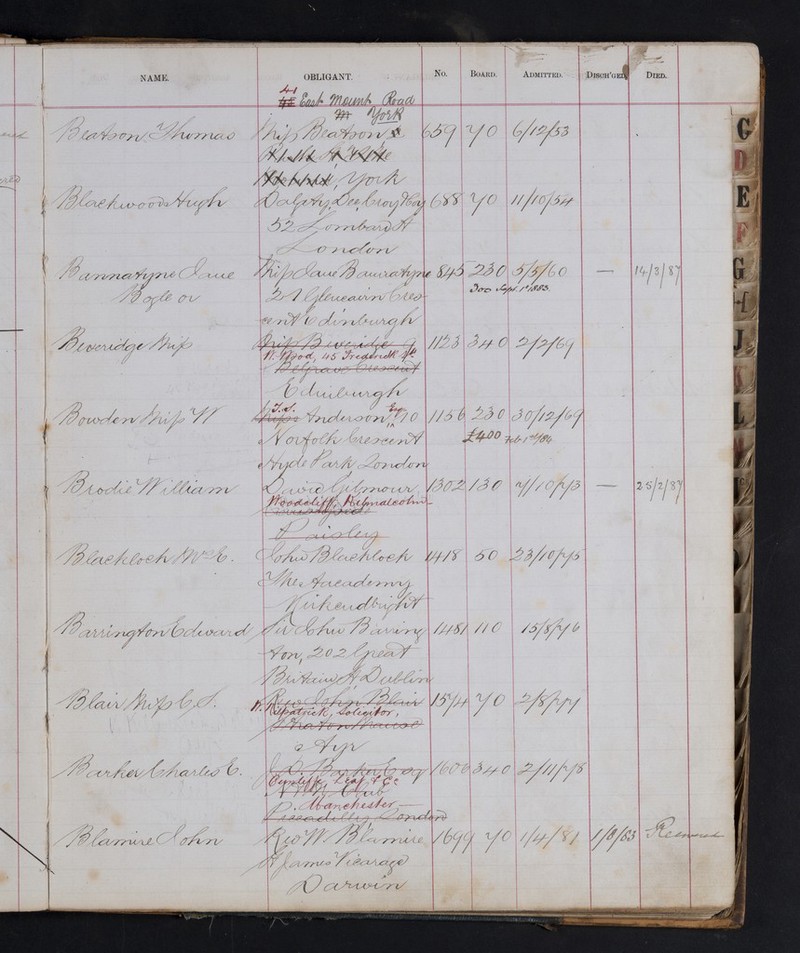 NAME. OBLIGANT. No. BOARD. ADMITTED. DISCH'GED. DIED.
41
East Mount Road
York
Beatson, Thomas Miss Beatson 659 70 6/12/53
York
Blackwood Hugh Dalgety Du Croy & Coy 688 70 11/10/54
52 Lombard St
London
Bannatyne Jane Miss Jane Bannatyne 845 230 5/5/60 — 14/3/87
Bogle or 21 Glencairn Cres 300 Sept. 1st 1883.
ent Edinburgh
Beveridge Miss Miss Beveridge 9 1123 340 2/2/69
W. Wood, 115 Frederick St
Belgrave Crescent
Edinburgh
Bowden Miss W T.S. Anderson Esq 70 1156 230 30/12/69
Norfolk Crescent £400 Feb 1st /86
Hyde Park London
Brodie William David Gilmour 1302 130 7/10/73 — 25/2/87
Woodcliff, Kilmalcolm
Paisley
Blacklock Mrs C. John Blacklock 1418 50 23/10/75
The Academy
Kirkcudbright
Barrington Edward Sir John Barring 1481 110 15/8/76
ton, 202 Great
Britain St Dublin
Blair Miss C. S. Rev John Blair 1574 70 2/8/77
W. Kilpatrick, Solicitor,
Ayr
Barker Charles E. J. D. Barker Esq 1606 340 2/11/78
Cunliffe, Leaf & Co
Club
Manchester
Piccadilly London
Blamire John Rev W. Blamire 1699 70 1/4/81 1/8/83 Removed
St James Vicarage
Darwin
G
D
E
F
G
H
J
K
L
M